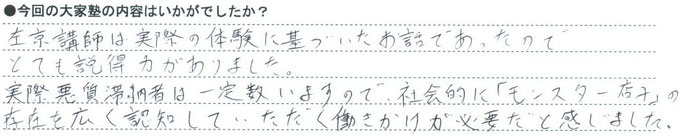 ●今回の大家塾の内容はいかがでしたか？
左京講師は実際の体験に基づいたお話であったので
とても説得力がありました。
実際悪質滞納者は一定数いますので、社会的に「モンスター店子」の
存在を広く認知していただく働きかけが必要だと感じました。